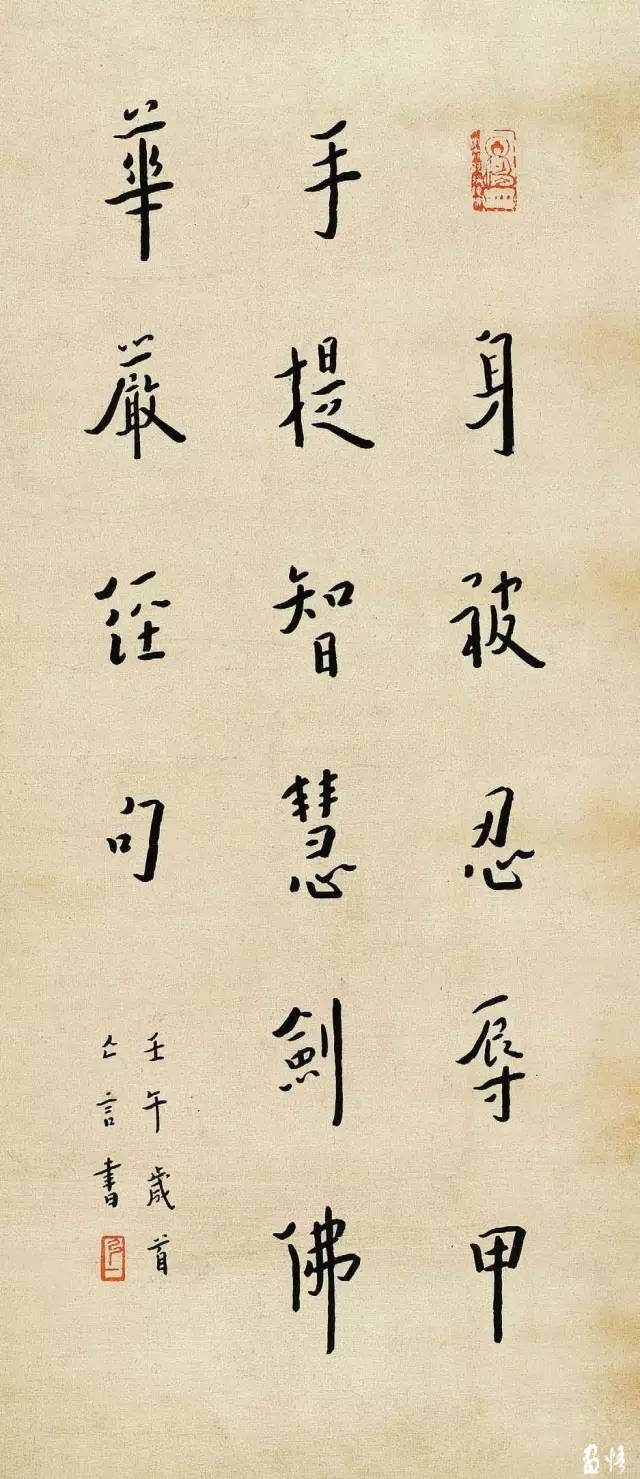 身被忍辱甲
手提智慧劍佛
華嚴經句
壬午歲首
亡言書
弘一